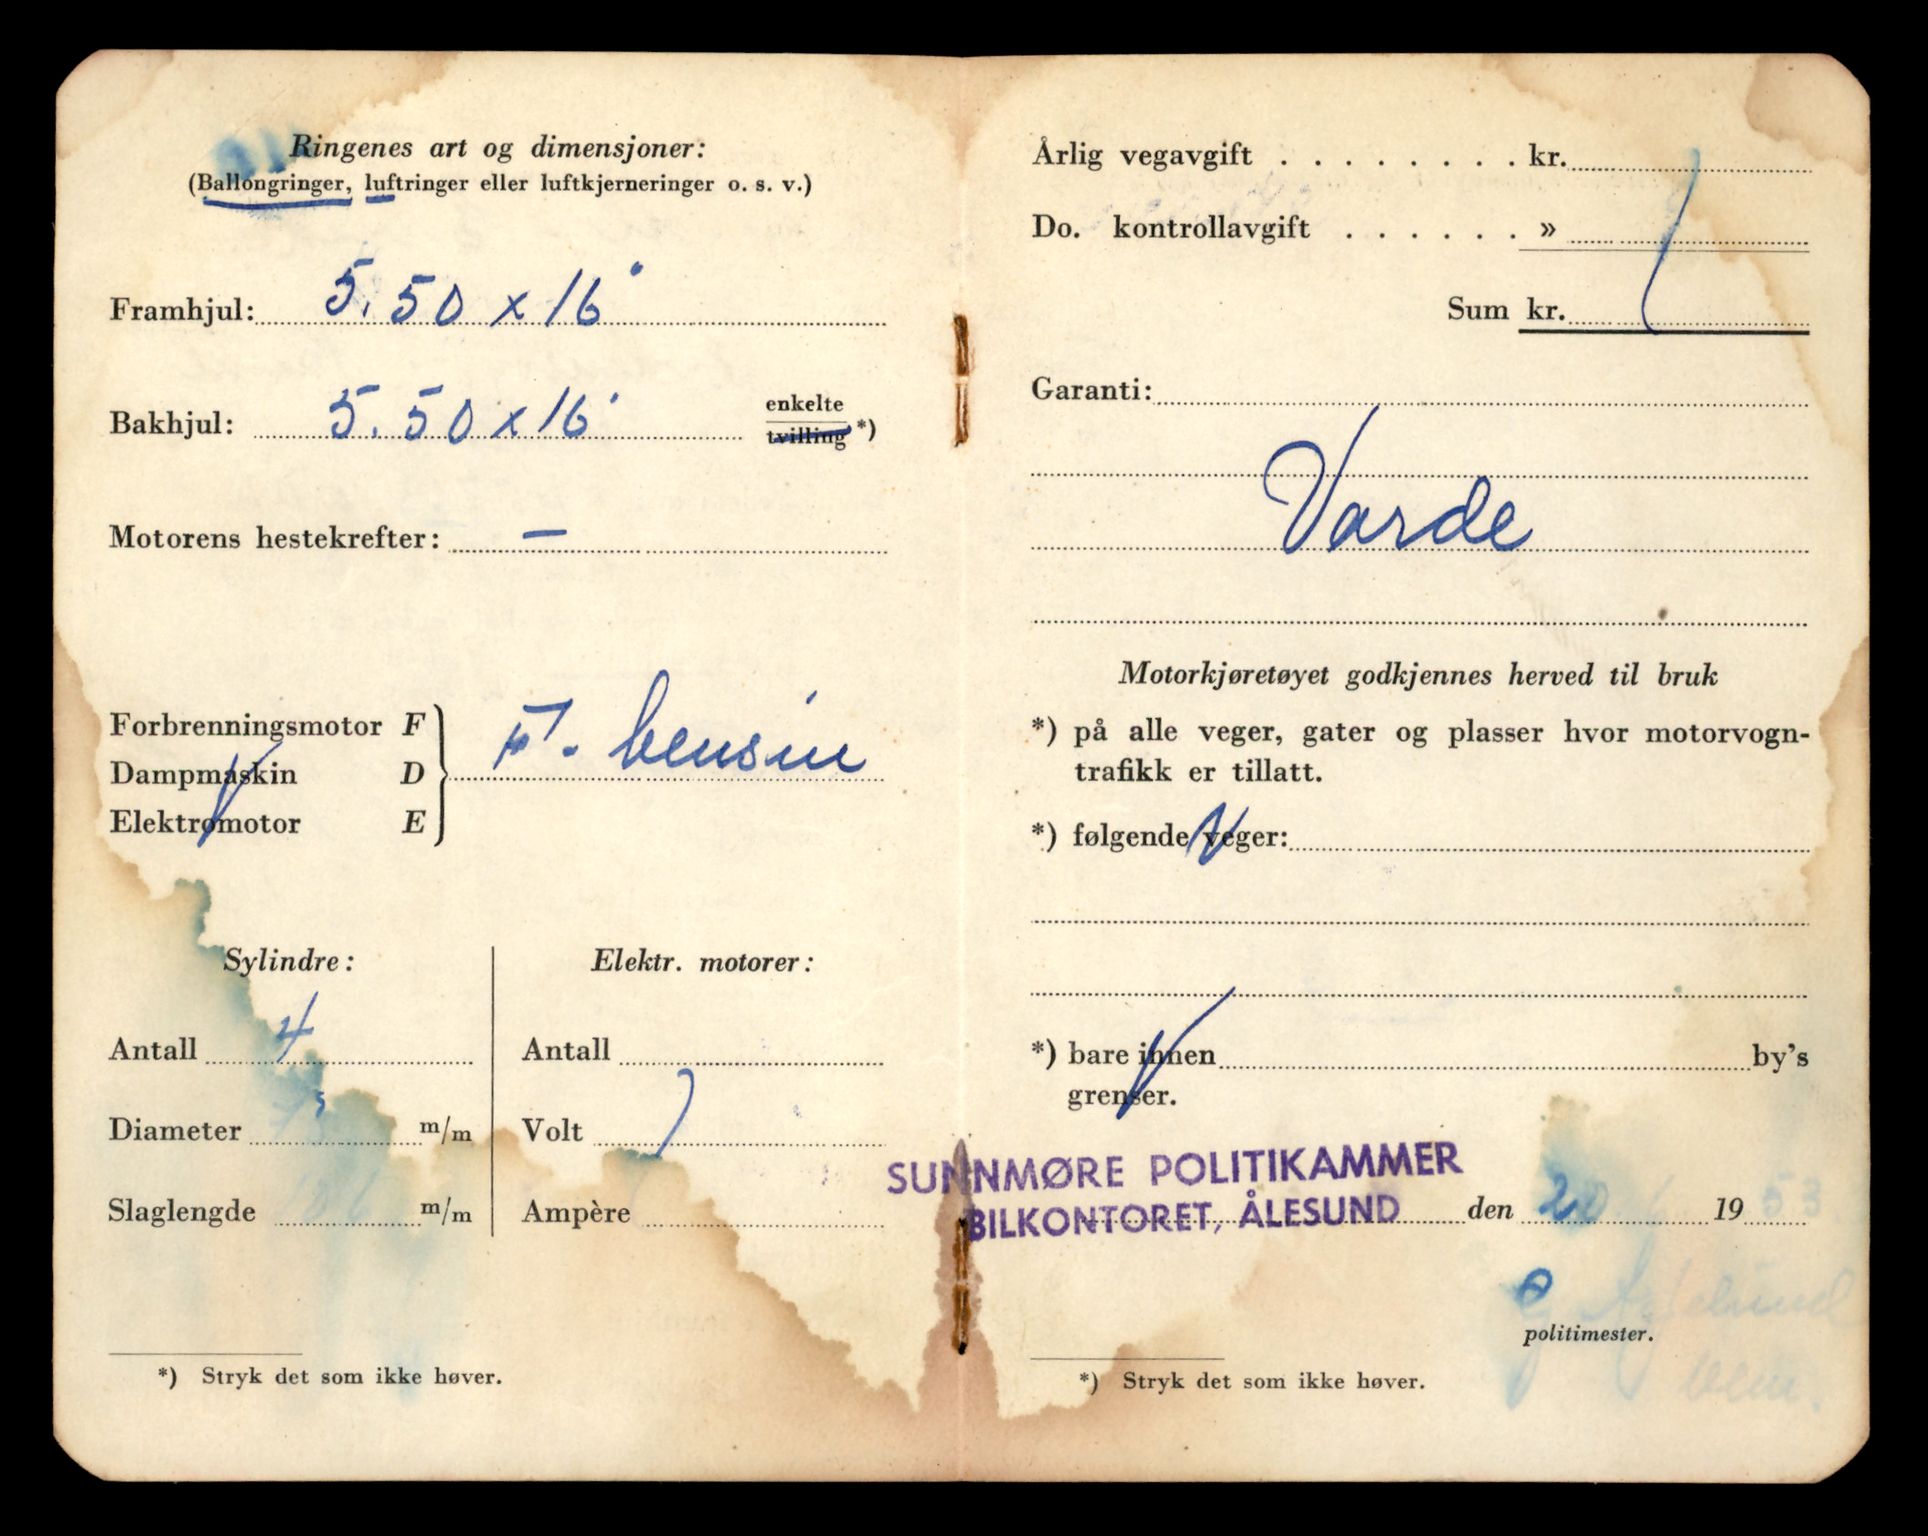 Ringenes art og dimensjoner:
(Ballongringer, luftringer eller luftkjerneringer o. s. v.)
Framhjul: 5.50 x 16"
Bakhjul: 5.50 x 16" enkelte
tvilling *)
Motorens hestekrefter: —
Forbrenningsmotor F
Dampmaskin D
Elektromotor E
F. bensin
Sylindre:
Antall 4
Diameter m/m
Slaglengde m/m
Elektr. motorer:
Antall
Volt
Ampère
*) Stryk det som ikke høver.
Årlig vegavgift . . . . . . . . kr.
Do. kontrollavgift . . . . . . »
Sum kr.
Garanti:
Varde
Motorkjøretøyet godkjennes herved til bruk
*) på alle veger, gater og plasser hvor motorvogn-
trafikk er tillatt.
*) følgende veger:
*) bare innen by's
grenser.
SUNNMØRE POLITIKAMMER
BILKONTORET, ÅLESUND den 20 1953
politimester.
*) Stryk det som ikke høver.